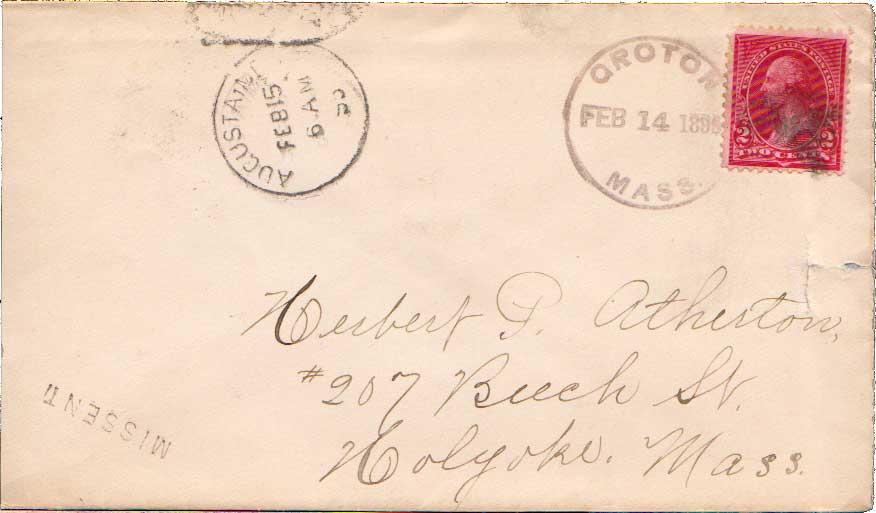 AUGUSTA
FEB 15
6 AM
GROTON
FEB 14
MASS.
UNITED STATES POSTAGE
2 2
TWO CENTS
Herbert P. Atherton,
#207 Beech St.
Holyoke. Mass.
MISSENT